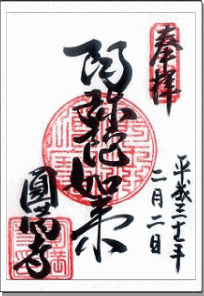 奉拝
平成二十七年
二月二日
阿弥陀如来
圓満寺